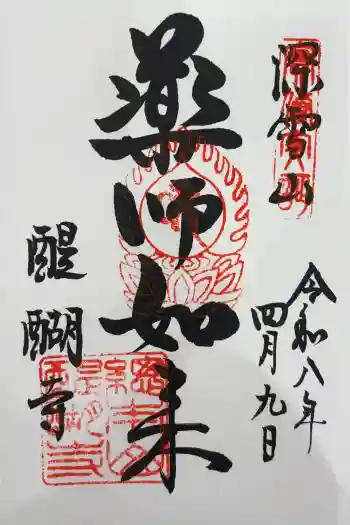 深雪山
令和八年
四月九日
薬師如来
醍醐寺